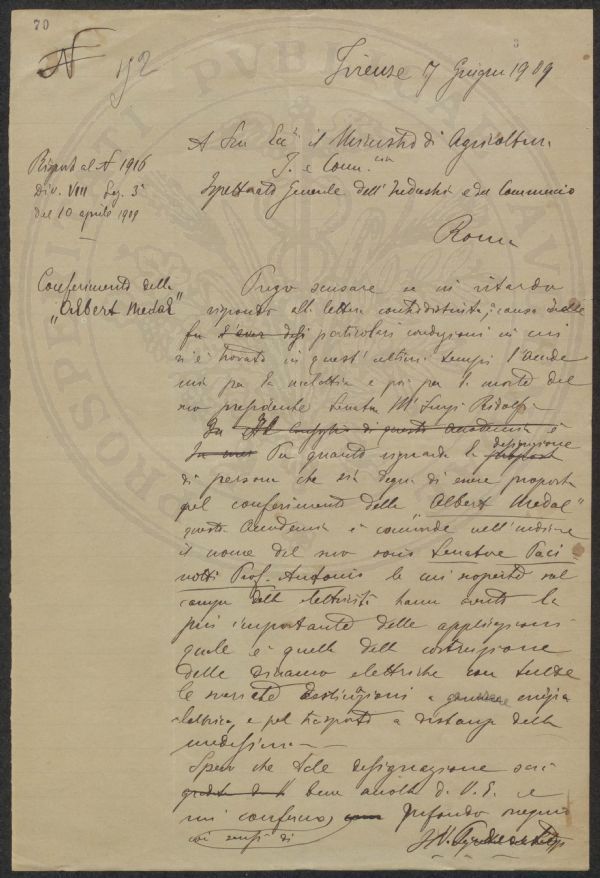 70
N 192
3
Firenze 7 Giugno 1909
A Sua Ecc. il Ministro di Agricoltura
I. e Comm.
Ispettorato Generale dell'Industria e del Commercio
Roma
Risposta al N 1916
Div. VIII Sez. 3ª
del 10 aprile 1909
Conferimento della
"Albert Medal"
Prego scusare se in ritardo
rispondo alla lettera contraddistinta, causa delle
particolari condizioni in cui
si è trovata in quest'ultimi tempi l'Accade
mia per la malattia e poi per la morte del
suo presidente Senator Mse Luigi Ridolfi
Il Consiglio di questa Accademia è
Per quanto riguarda la designazione
di persona che sia degna di essere proposta
pel conferimento della "Albert Medal"
questa Accademia è concorde nell'indicare
il nome del suo socio Senatore Paci
notti Prof. Antonio le cui scoperte nel
campo dell'elettricità hanno avuto la
più importante delle applicazioni
quale è quella della costruzione
delle dinamo elettriche con tutte
le svariate destinazioni a generare energia
elettrica, e pel trasporto a distanza della
medesima
Spero che tale designazione sarà
bene accolta da V. E. e
mi confermo profondo ossequio
coi sensi di